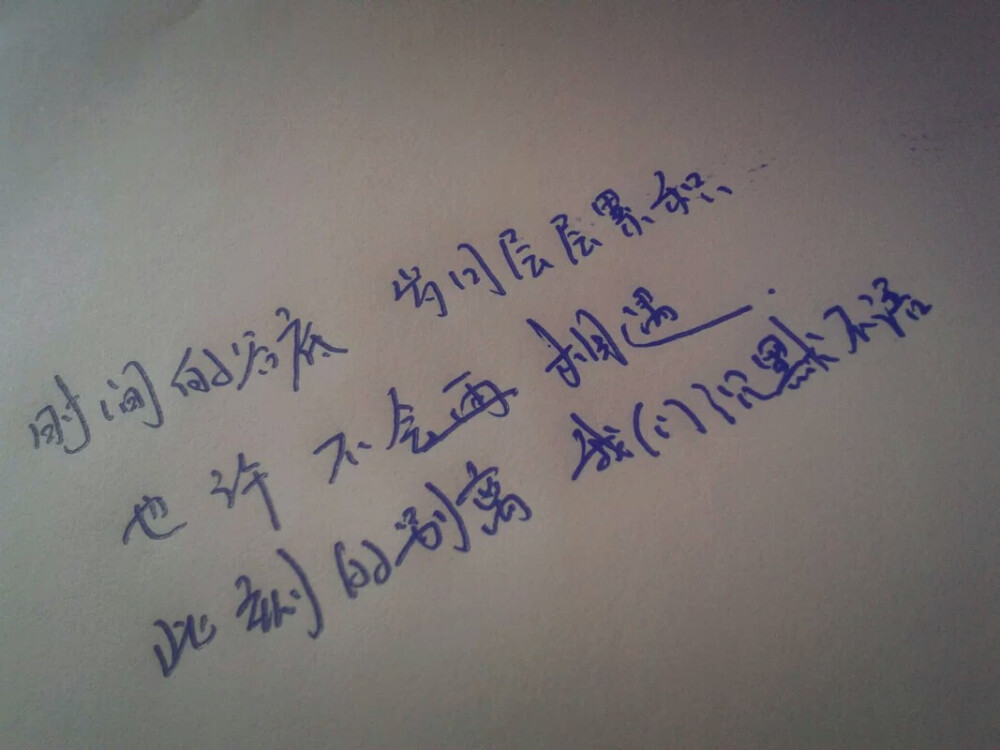 时间的谷底 岩间层层累积
也许 不会再 相遇
此刻的别离 我们沉默不语